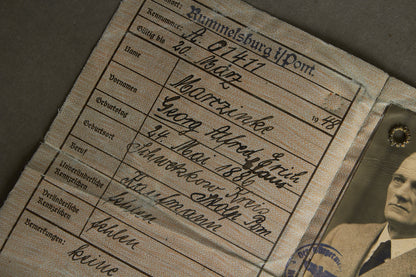 Rummelsburg i/Pom.
Kennummer: A 01411
Gültig bis 20. März 1948
Name Marzinke
Vornamen Georg Alfred Erich
Geburtstag 24. Mai
Geburtsort Schwesskow Kreis
Beruf Kaufmann
Unveränderliche Kennzeichen fehlen
Veränderliche Kennzeichen fehlen
Bemerkungen: keine